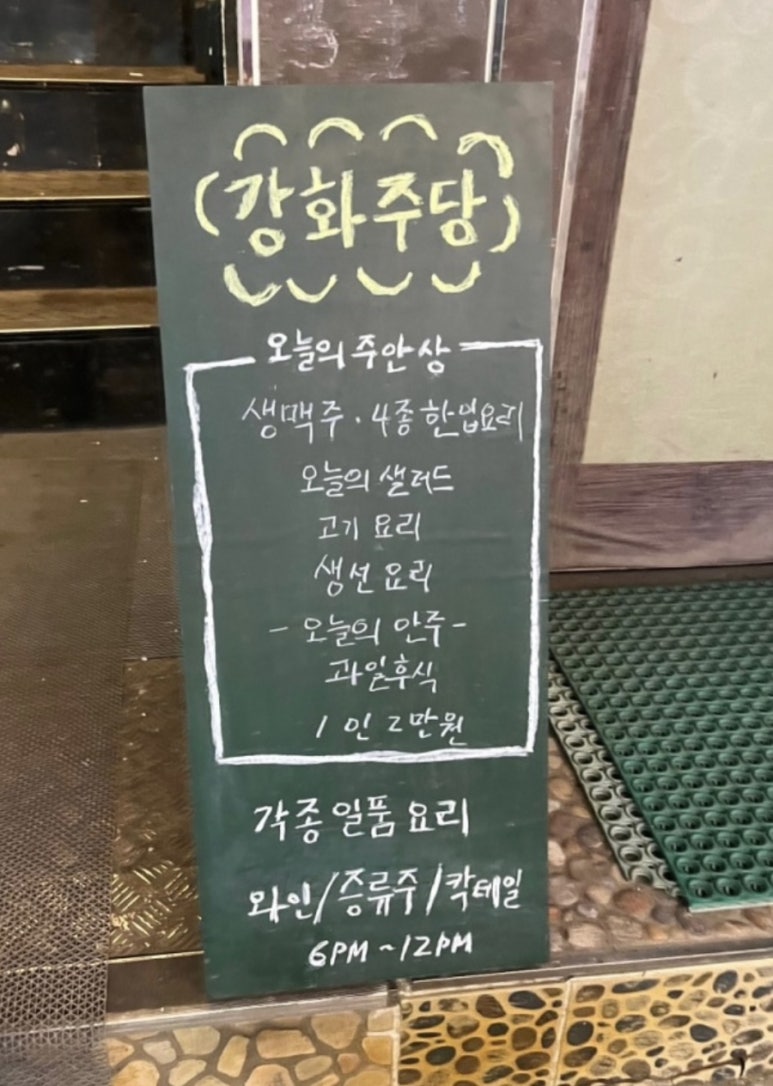 (강화주당)
오늘의 주안상
생맥주 · 4종 한입요리
오늘의 샐러드
고기 요리
생선 요리
- 오늘의 안주 -
과일후식
1인 2만원
각종 일품 요리
와인/증류주/칵테일
6PM ~ 12PM